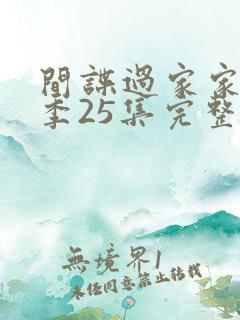 間諜過家家
季25集完整
無境界1
未經同意禁止轉載